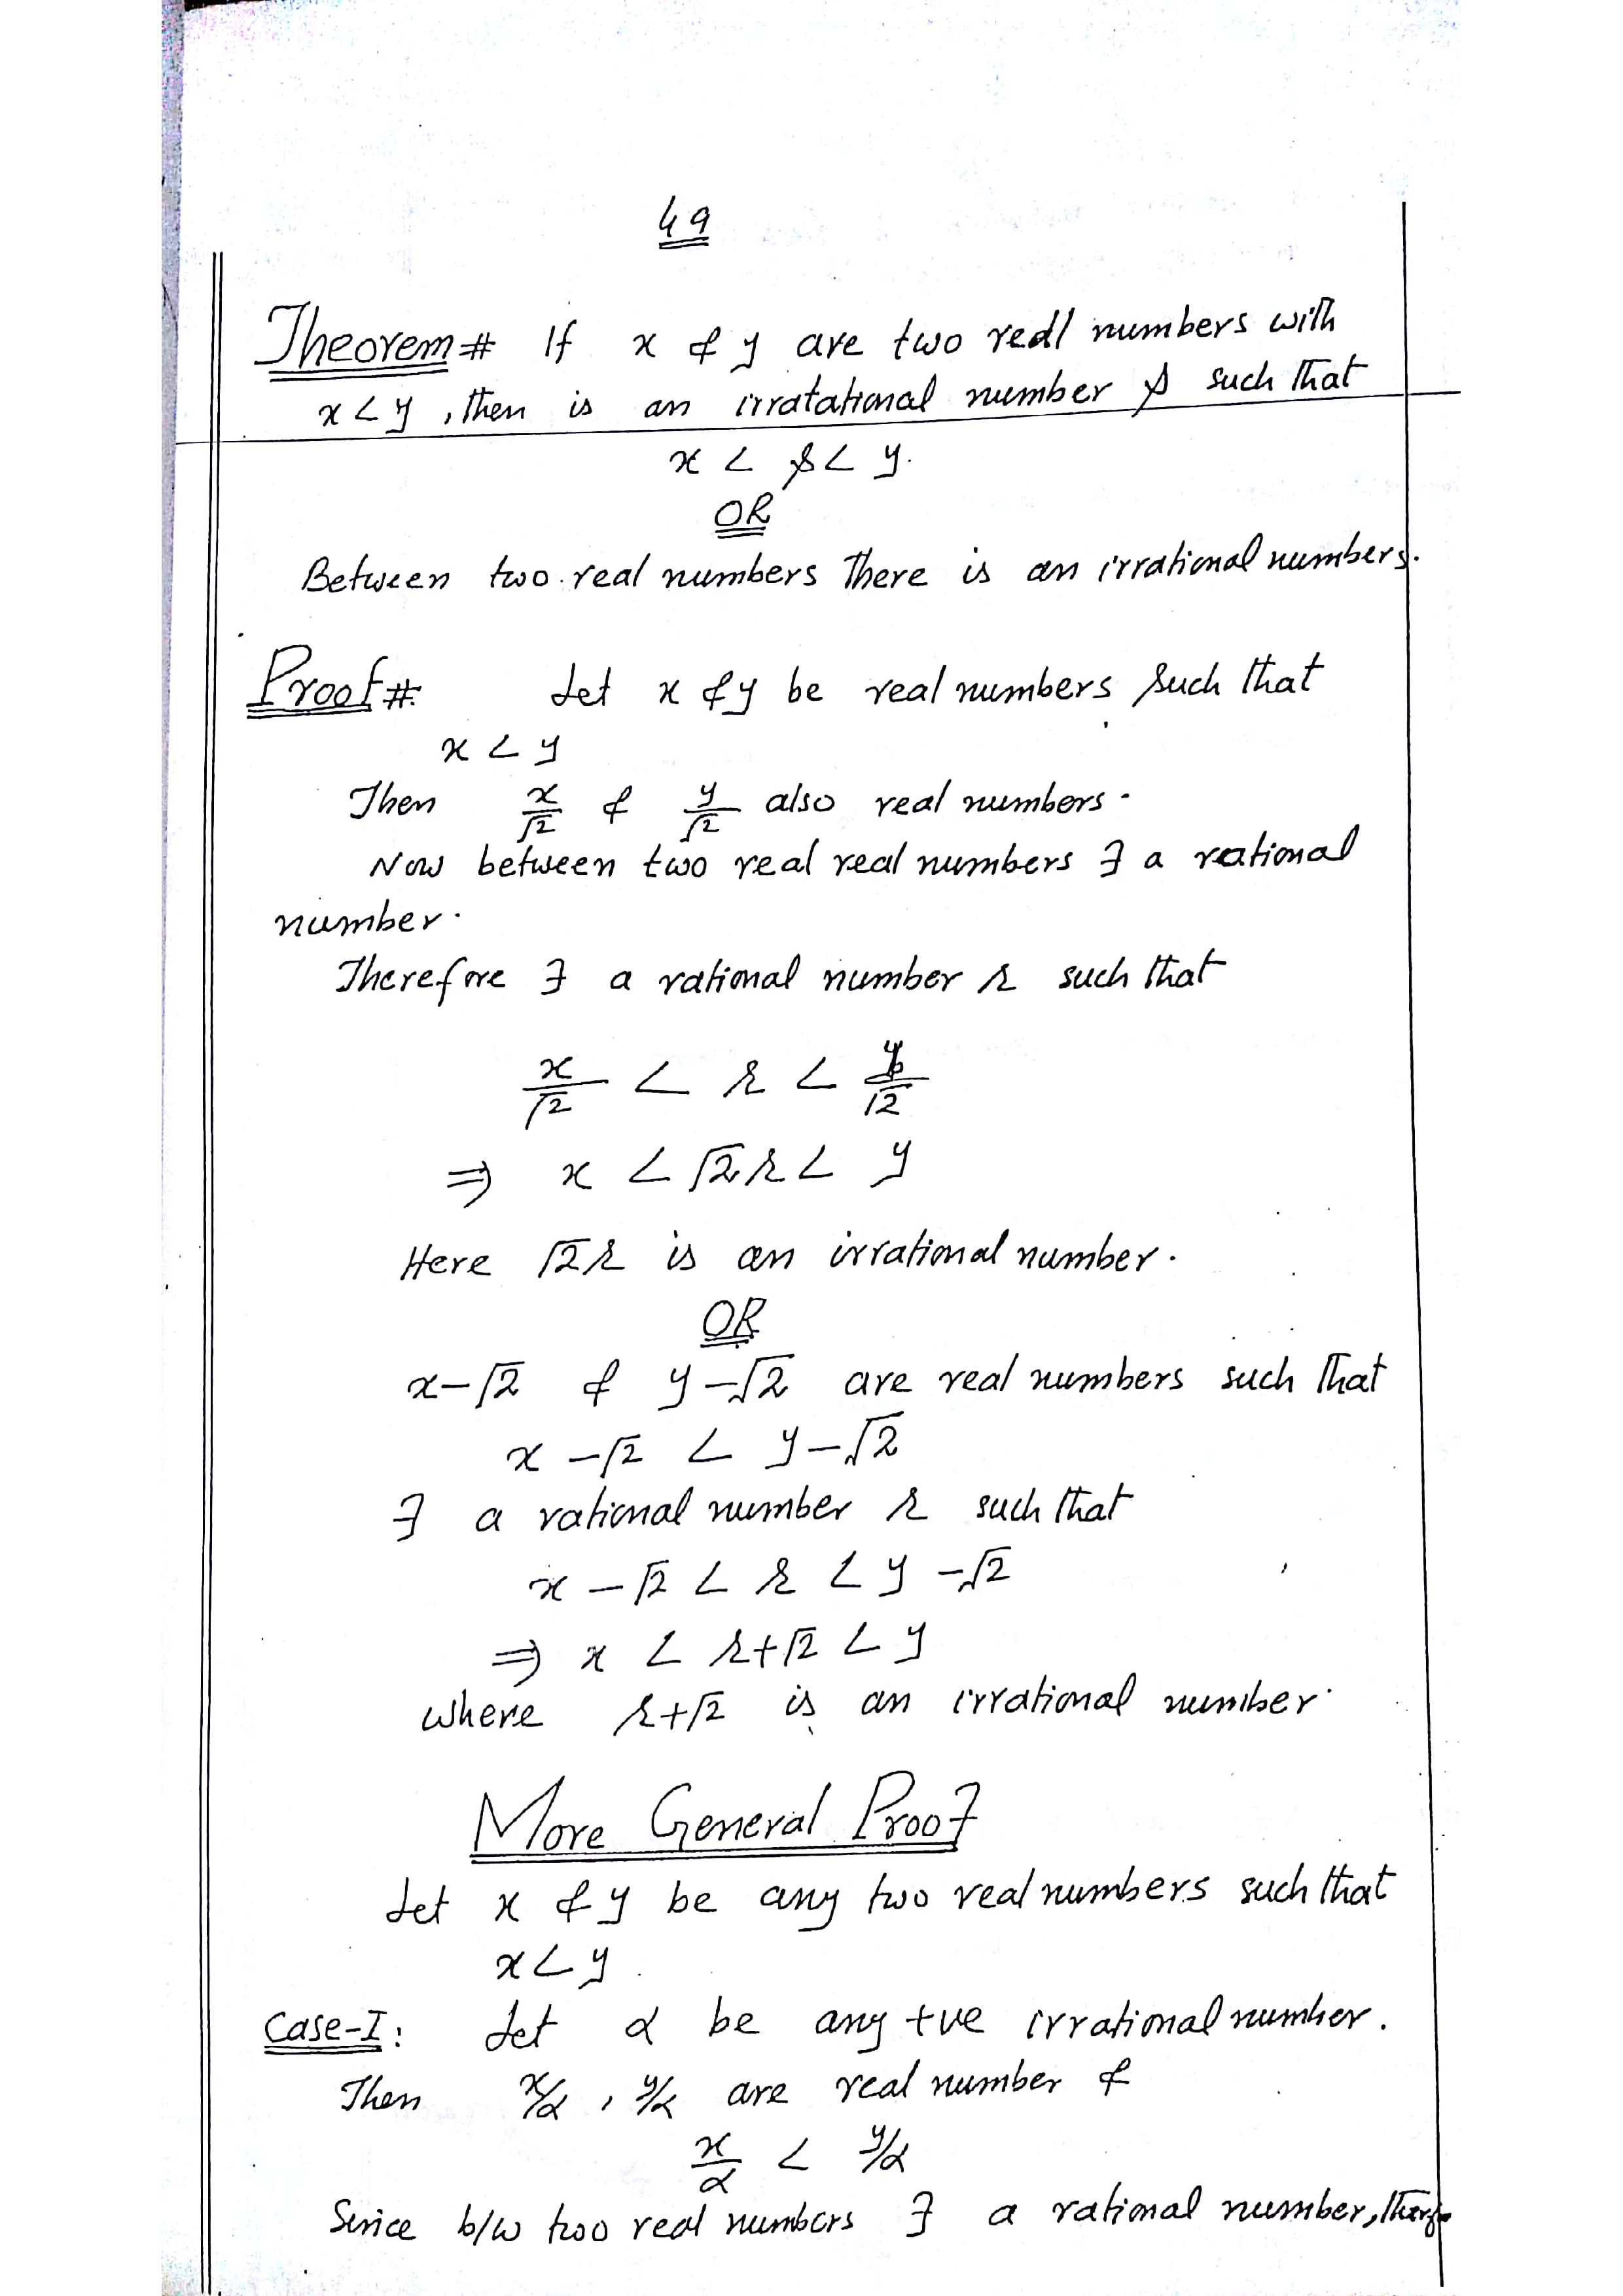 49
Theorem# If x & y are two real numbers with
x < y, then is an irratational number s such that
x < s < y.
OR
Between two real numbers there is an irrational numbers.
Proof# Let x & y be real numbers such that
x < y
Then x/√2 & y/√2 also real numbers.
Now between two real real numbers ∃ a rational
number.
Therefore ∃ a rational number r such that
x/√2 < r < y/√2
⇒ x < √2 r < y
Here √2 r is an irrational number.
OR
x-√2 & y-√2 are real numbers such that
x-√2 < y-√2
∃ a rational number r such that
x-√2 < r < y-√2
⇒ x < r+√2 < y
where r+√2 is an irrational number.
More General Proof
Let x & y be any two real numbers such that
x < y.
Case-I: Let α be any +ve irrational number.
Then x/α, y/α are real number &
x/α < y/α
Since b/w two real numbers ∃ a rational number,